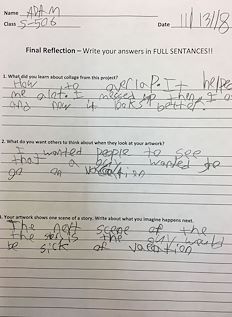 Name ADAM
Class 5-506
Date 11/13/18
Final Reflection – Write your answers in FULL SENTANCES!!
1. What did you learn about collage from this project?
How to overlap. It helped
me alot. I messed up then I
and now it looks better.
2. What do you want others to think about when they look at your artwork?
I wanted people to see
that a boy wanted to
go on vacation
3. Your artwork shows one scene of a story. Write about what you imagine happens next.
The next scene of the
the story is the guy would
be sick of vacation